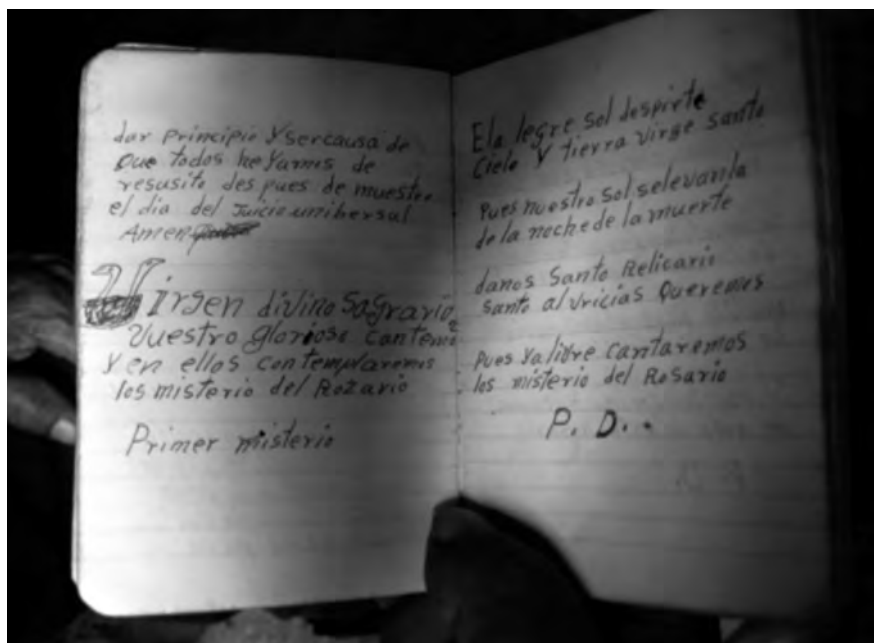 dar principio Y sercausa de
que todos heYarmos de
resusito des pues de muestro
el dia del Juicio unibersal
Amen
Virgen divino Sagrario
Vuestro glorioso cantemo
Y en ellos contemplaremos
los misterio del Rozario
Primer misterio
Ela legre sol despirte
Cielo Y tierra virge santo
Pues nuestro Sol selevanla
de la noche de la muerte
danos Santo Relicario
santo al vricias Queremos
Pues Ya livre cantaremos
los misterio del Rosario
P. D..